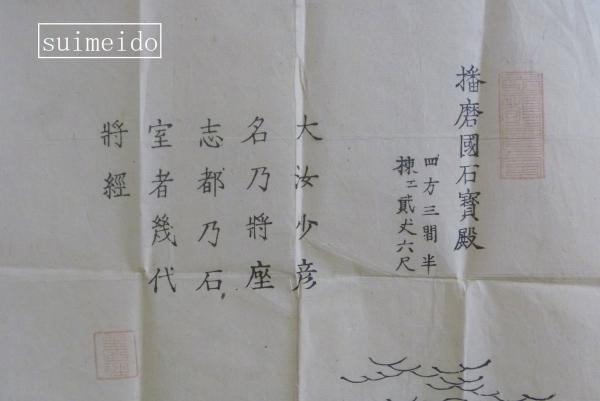 suimeido
播磨國石寶殿
四方三間半
棟二貳丈六尺
大汝少彦
名乃將座
志都乃石
室者幾代
將經